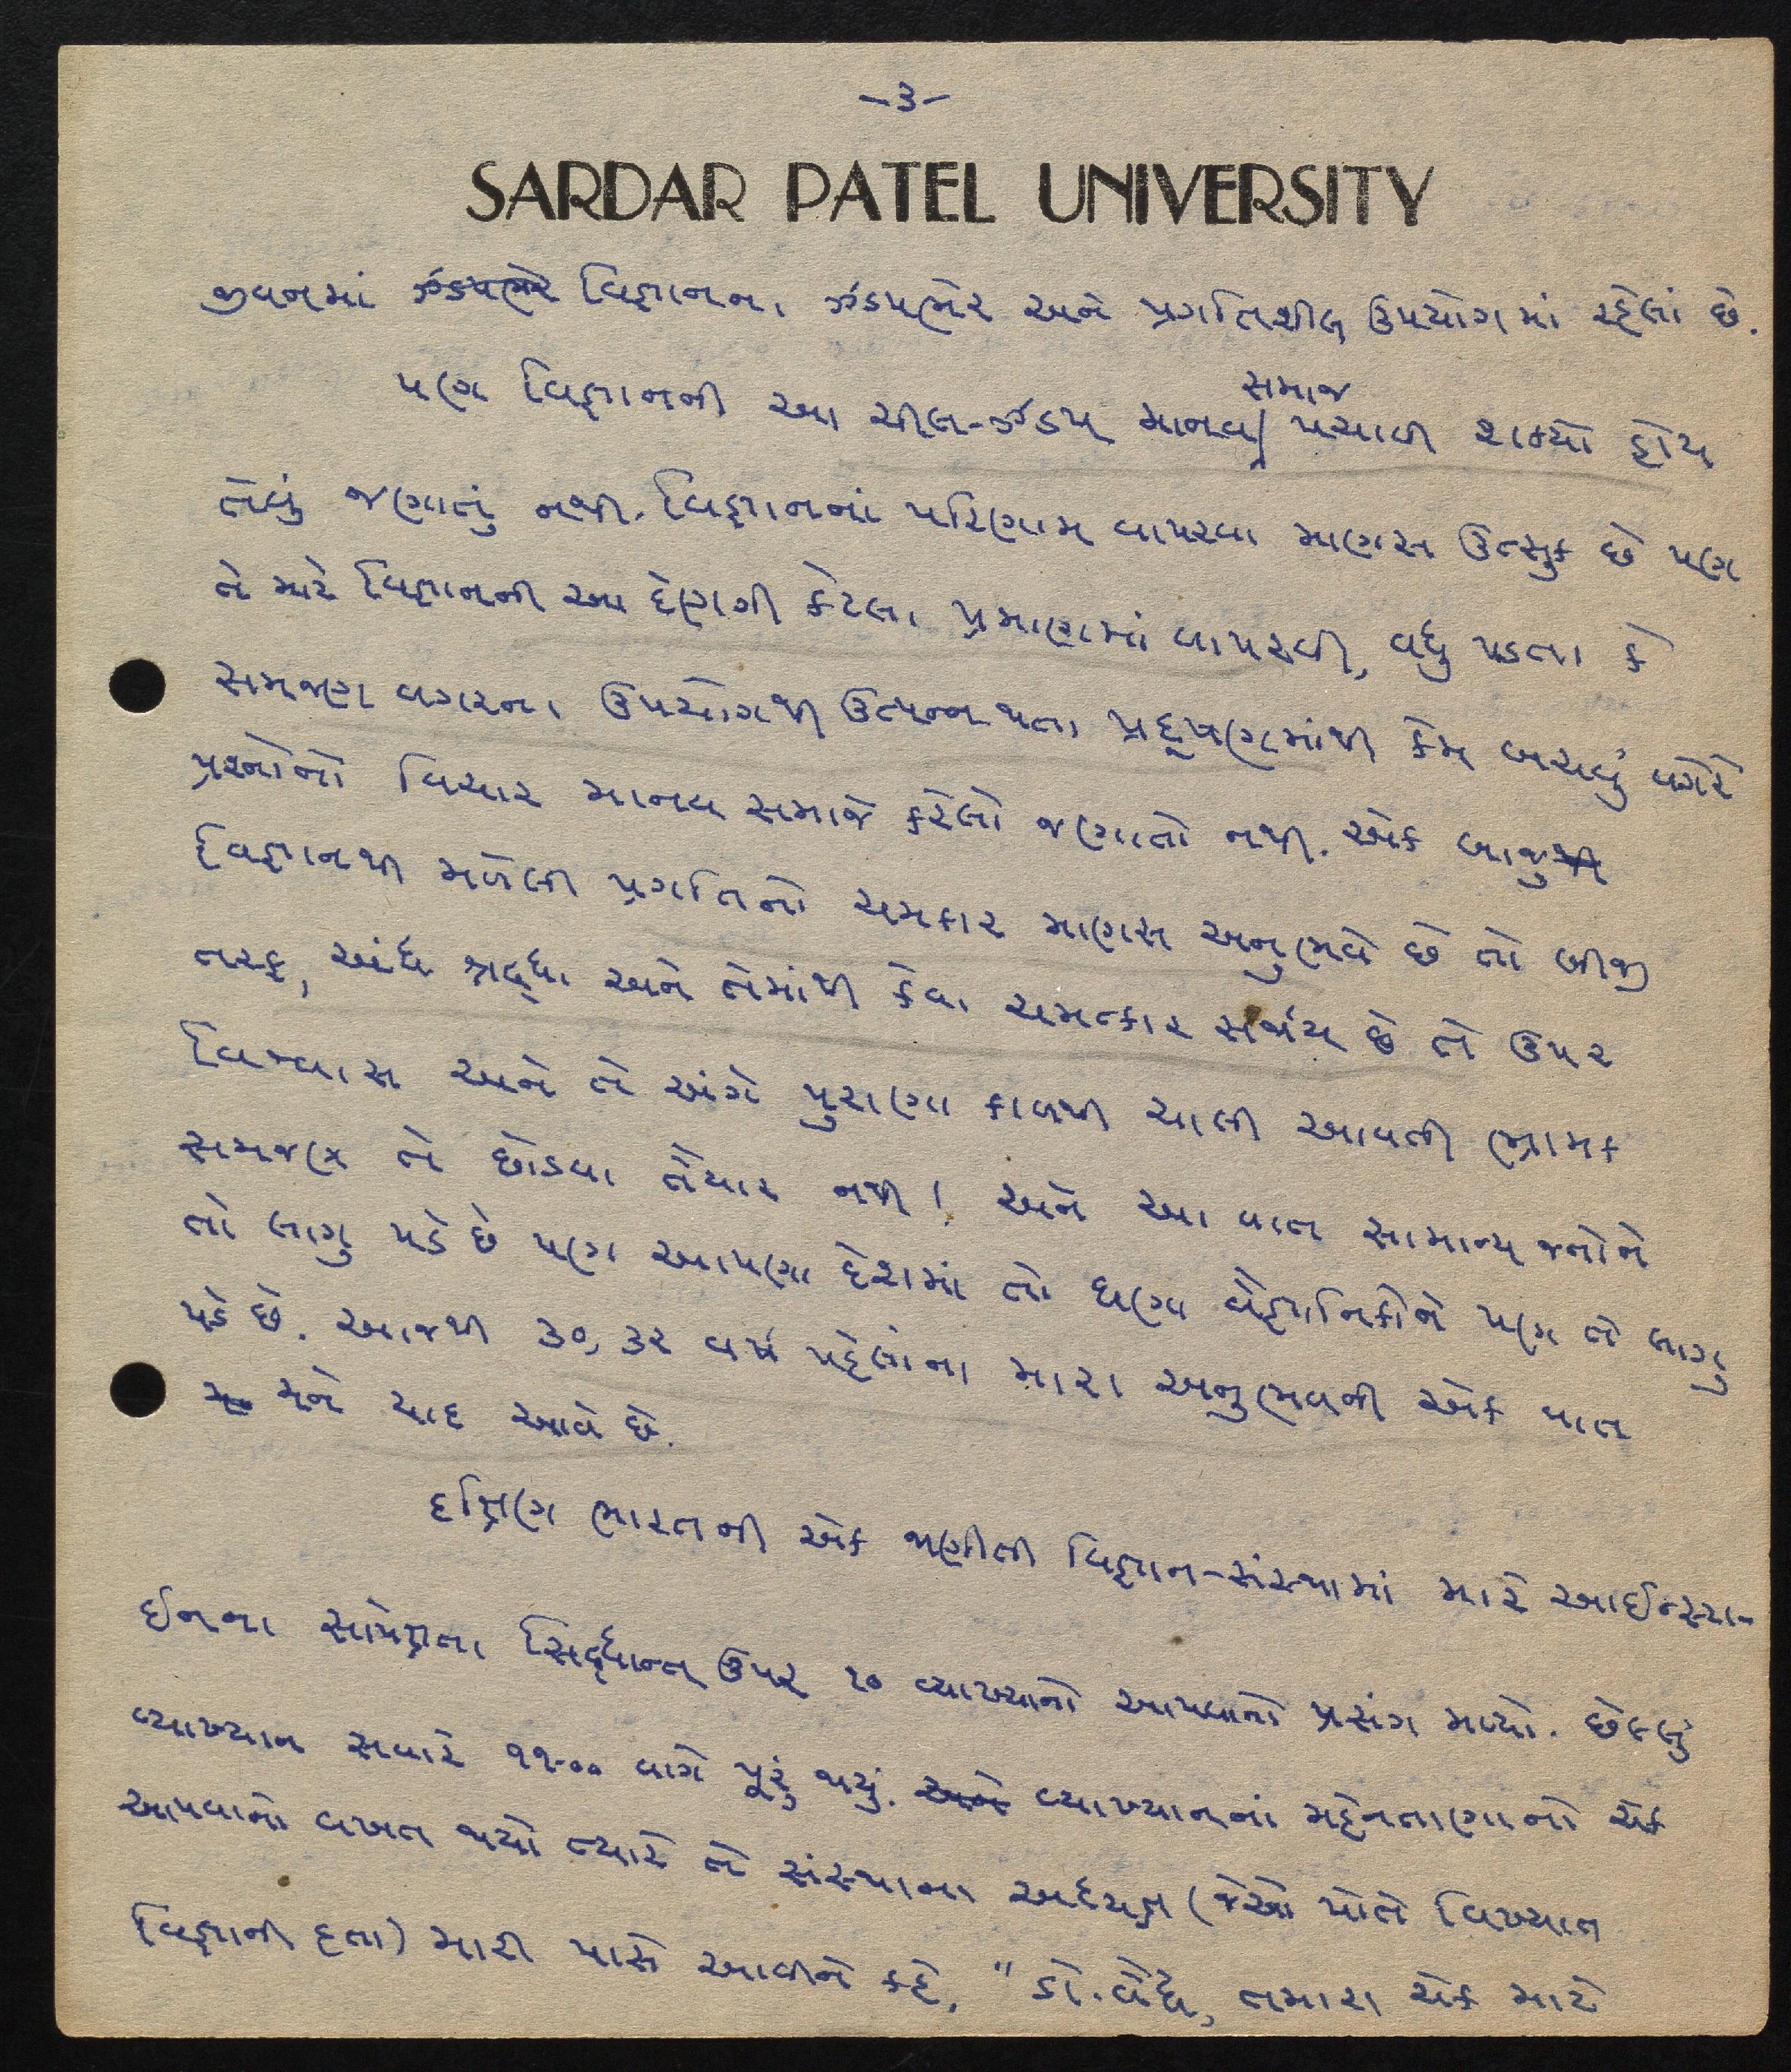 -૩-
SARDAR PATEL UNIVERSITY
જીવનમાં ઝડપભેર વિજ્ઞાનના ઝડપભેર અને પ્રગતિશીલ ઉપયોગમાં રહેલાં છે.
સમાજ
પણ વિજ્ઞાનની આ ચીલ-ઝડપ માનવ પચાવી શક્યો હોય
તેવું જણાતું નથી. વિજ્ઞાનનાં પરિણામ વાપરવા માણસ ઉત્સુક છે પણ
તે માટે વિજ્ઞાનની આ દેણગી કેટલા પ્રમાણમાં વાપરવી, વધુ પડતા કે
સમજણ વગરના ઉપયોગથી ઉત્પન્ન થતા પ્રદૂષણમાંથી કેમ બચવું વગેરે
પ્રશ્નોનો વિચાર માનવ સમાજે કરેલો જણાતો નથી. એક બાજુથી
વિજ્ઞાનથી મળેલી પ્રગતિનો ચમકાર માણસ અનુભવે છે તો બીજી
તરફ, અંધ શ્રદ્ધા અને તેમાંથી કેવા ચમત્કાર સર્જાય છે તે ઉપર
વિશ્વાસ અને તે અંગે પુરાણા કાળથી ચાલી આવતી ભ્રામક
સમજણ તે છોડવા તૈયાર નથી! અને આ વાત સામાન્ય જનોને
તો લાગુ પડે છે પણ આપણા દેશમાં તો ઘણા વૈજ્ઞાનિકોને પણ તે લાગુ
પડે છે. આજથી ૩૦, ૩૨ વર્ષ પહેલાંના મારા અનુભવની એક વાત
મને યાદ આવે છે.
દક્ષિણ ભારતની એક જાણીતી વિજ્ઞાન-સંસ્થામાં મારે આઈન્સ્ટા-
ઈનના સાપેક્ષતા સિદ્ધાન્ત ઉપર ૧૦ વ્યાખ્યાનો આપવાનો પ્રસંગ મળ્યો. છેલ્લું
વ્યાખ્યાન સવારે ૧૧-૦૦ વાગે પૂરું થયું. અને વ્યાખ્યાનનાં મહેનતાણાનો ચેક
આપવાનો વખત થયો ત્યારે તે સંસ્થાના અધ્યક્ષ (જેઓ પોતે વિખ્યાત
વિજ્ઞાની હતા) મારી પાસે આવીને કહે, "ડૉ. વૈદ્ય, તમારા ચેક માટે